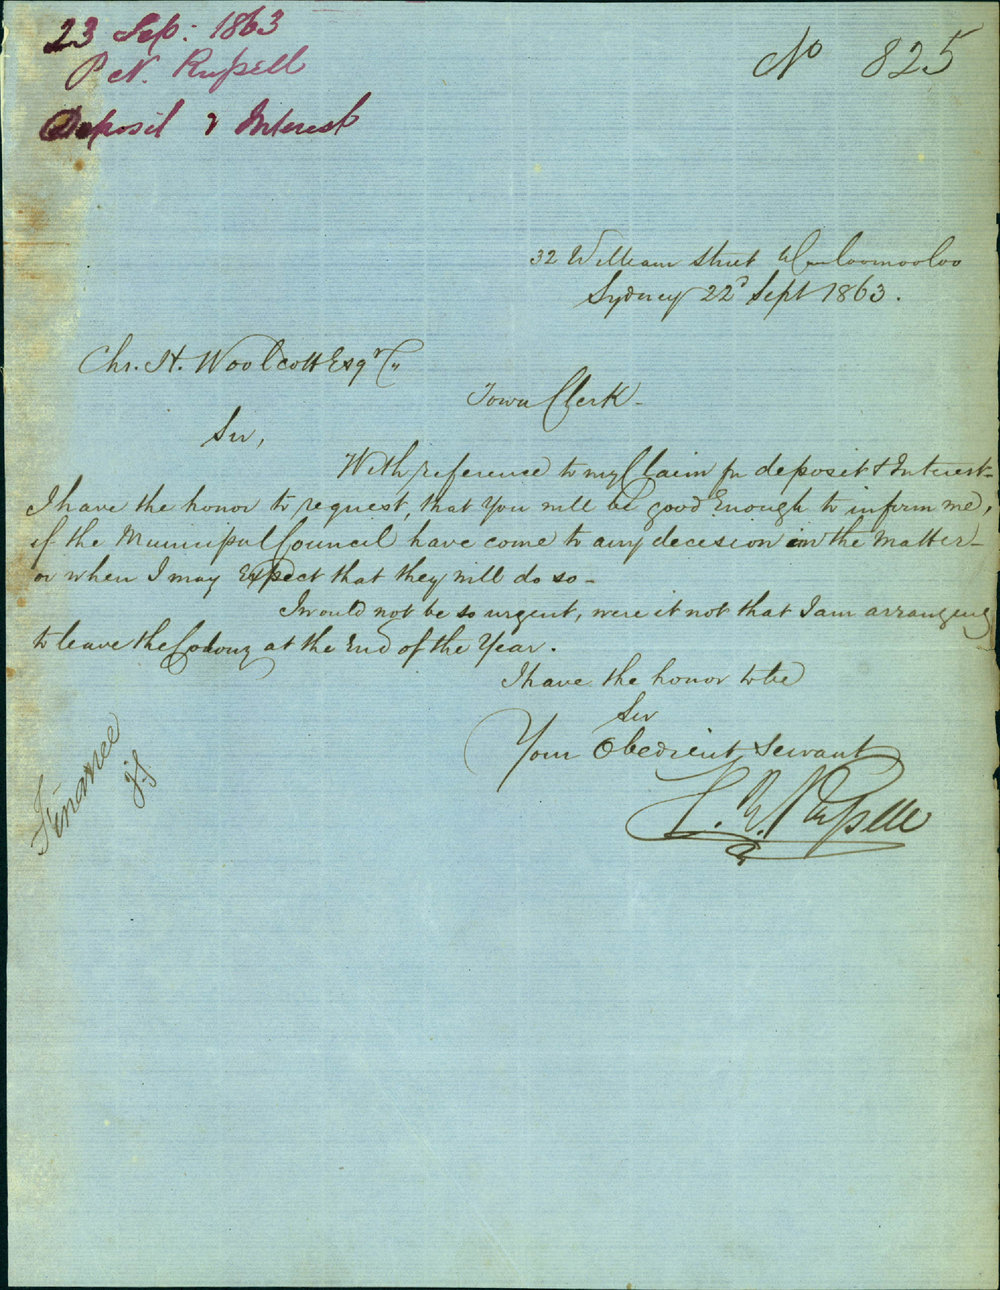 23 Sep: 1863
P N. Russell
Deposit & Interest
No 825
32 William Street Wooloomooloo
Sydney 22d Sept 1863.
Chs. H. Woolcott Esqr
Town Clerk -
Sir,
With reference to my Claim for deposit & Interest -
I have the honor to request, that you will be good Enough to inform me,
if the Municipal Council have come to any decesion in the matter -
or when I may Expect that they will do so -
I would not be so urgent, were it not that I am arranging
to leave the Colony at the End of the Year.
I have the honor to be
Sir
Your Obedient Servant
P. N. Russell
Finance